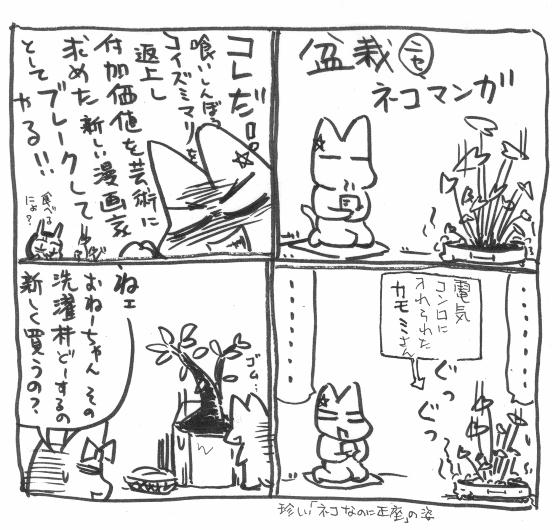 盆栽㊁
ネコマンガ
電気
コンロに
入れられた
カモミさん
ぐっ
ぐっ
珍しい「ネコなのに正座」の姿
コレだ!!
喰いしんぼう
コイズミマリを
返上し
付加価値を芸術に
求めた新しい漫画家
としてブレークして
やる!!
食べは
にょ?
ゴム…
ねェ
おねーちゃん その
洗濯村どーするの
新しく買うの?